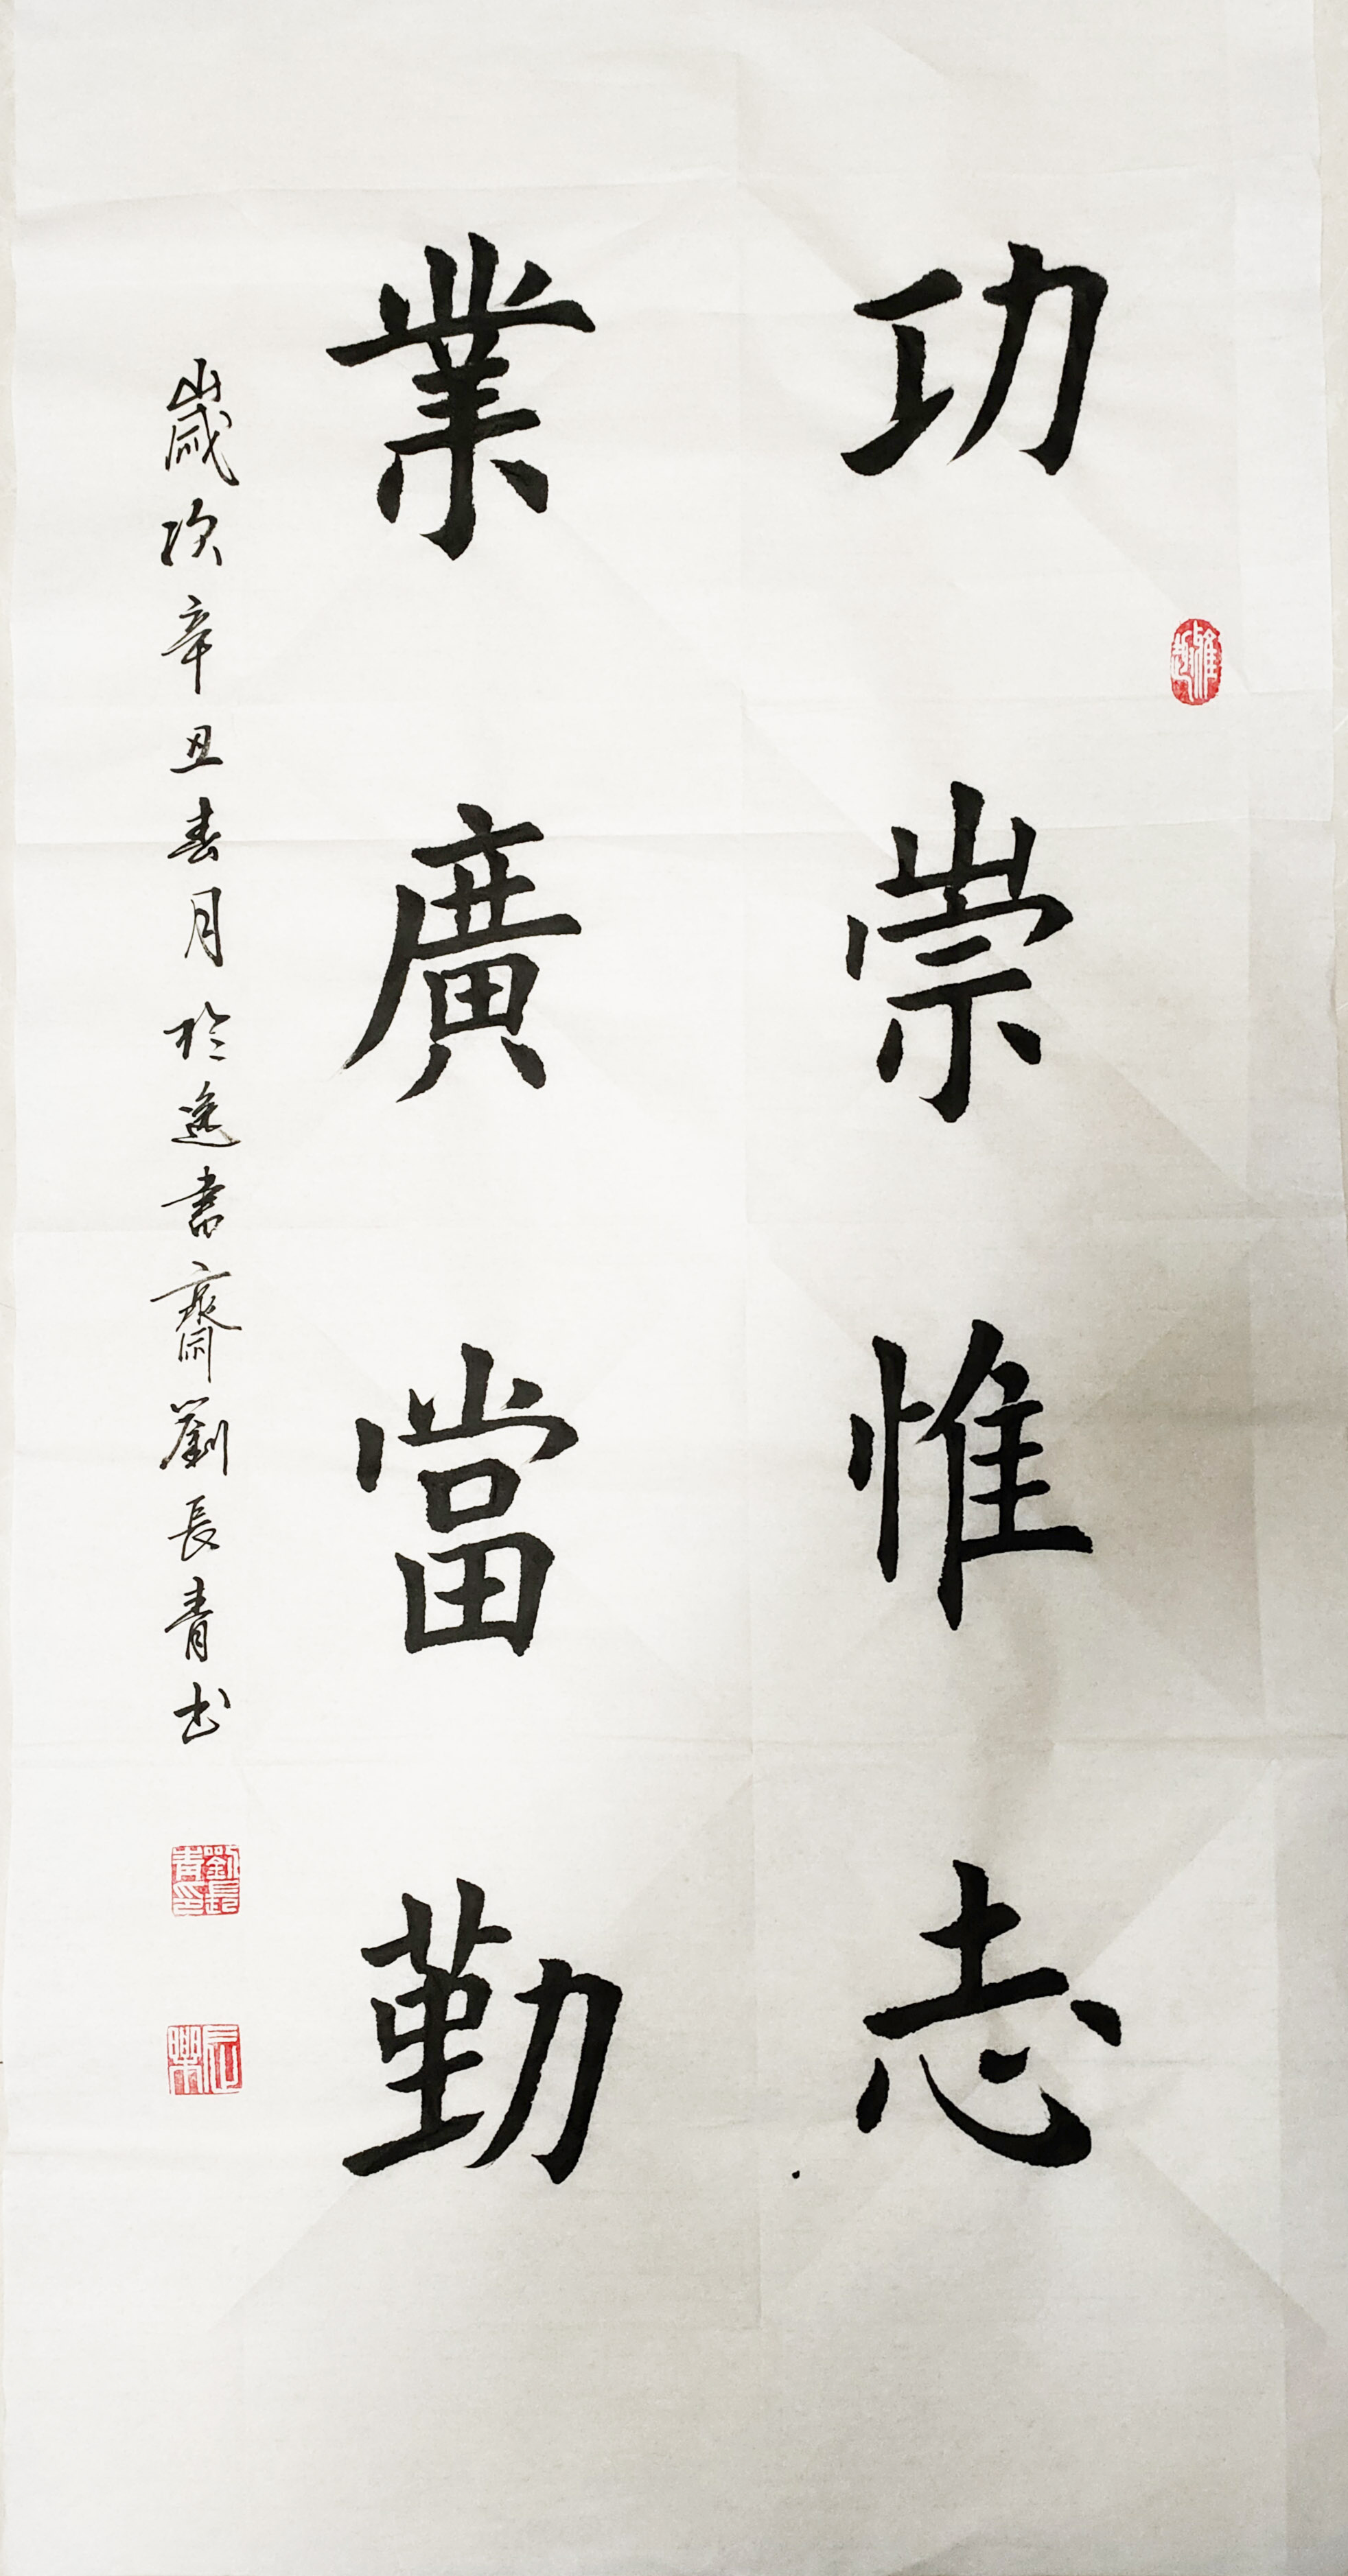 功崇惟志
業廣當勤
歲次辛丑春月於逸書齋劉長青书
雅趣
劉長青印